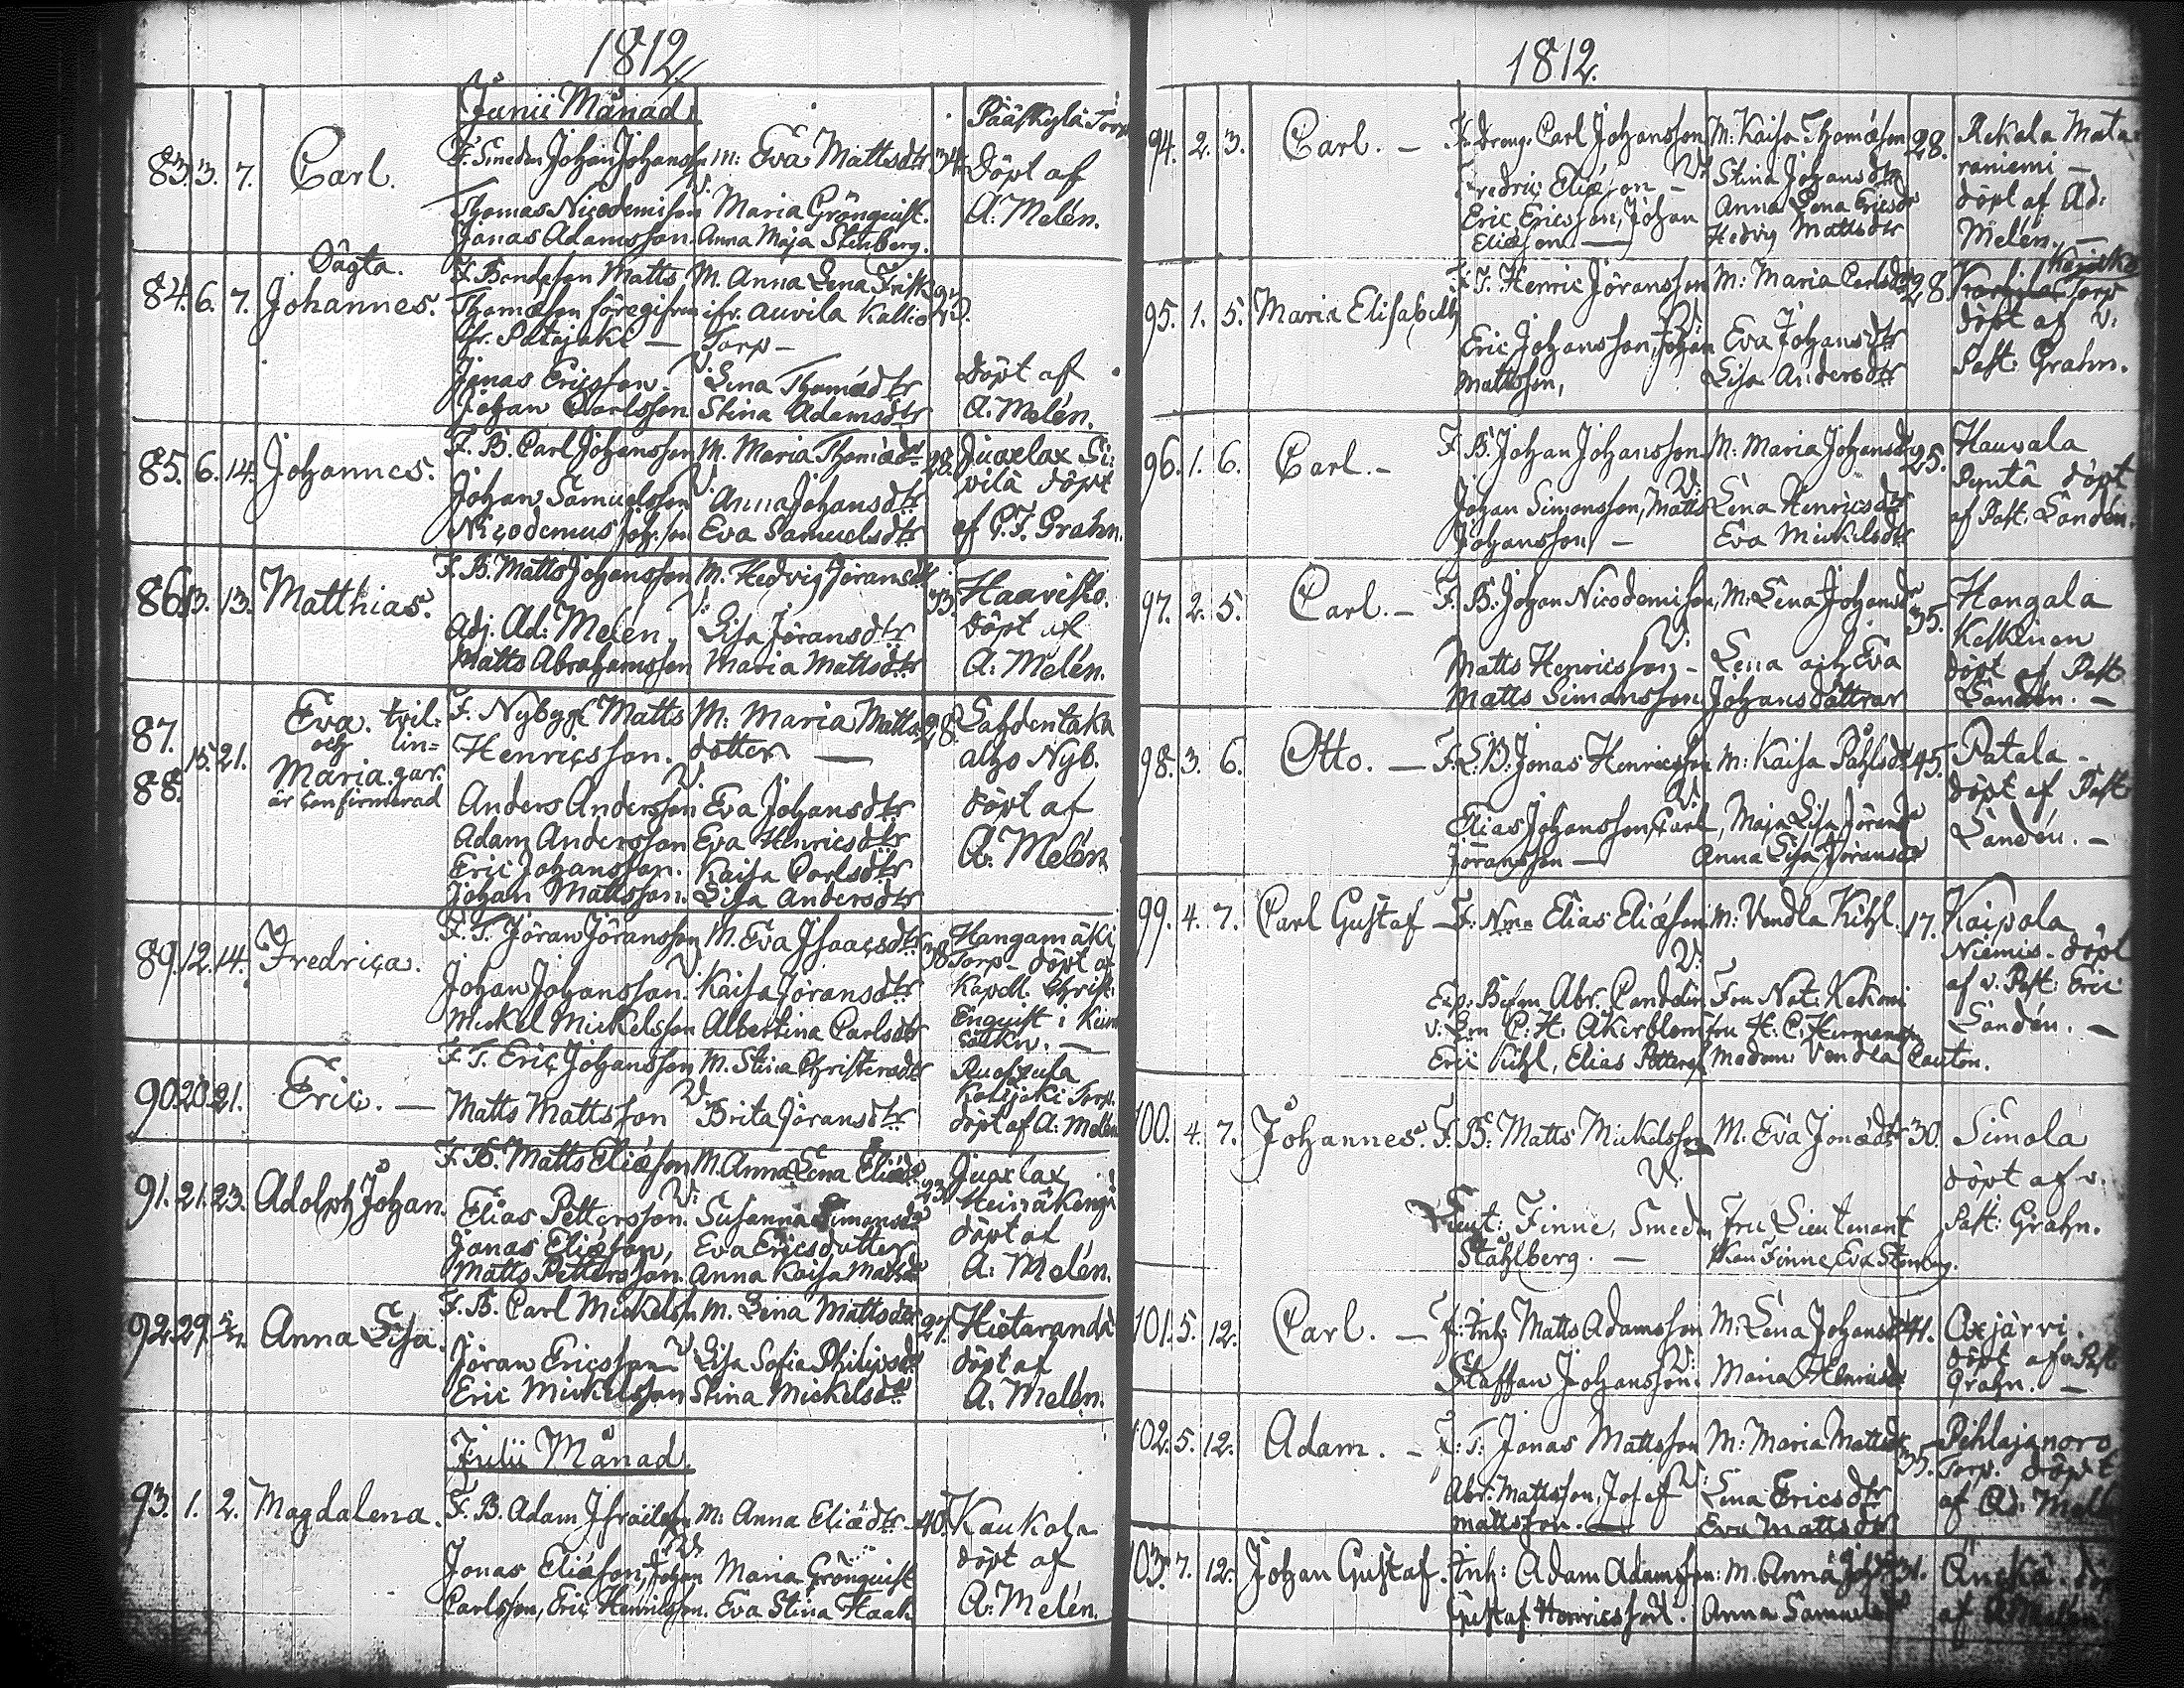 1812
Junii Månad
83. 3. 7. Carl. F. Smeden Johan Johansson M: Eva Mattsdtr 34. Pääskylä Torp
V. Döpt af
Thomas Nicodemisson Maria Grönquist. A. Melén.
Jonas Adamsson. Anna Maja Stenberg.
Oägta.
84. 6. 7. Johannes. F. Bondeson Matts M. Anna Lena Frisk
Thomæson föregifven ifr. Auvila Kallio
ifr. Patajoki — Torp —
V.
Jonas Ericsson. Lena Thomædtr Döpt af
Johan Carlsson Stina Adamsdtr A. Melén.
85. 6. 14. Johannes. F. B. Carl Johansson M. Maria Thomædr 28. Juaxlax Si:
V. vilä döpt
Johan Samuelsson Anna Johansdtr
Nicodemus Joh:son Eva Samuelsdtr af P. F. Grahn.
86. 13. 13. Matthias. F. B. Matts Johansson M. Hedvig Jöransdr 33. Haavisto.
V. Döpt af
Adj. Ad: Melén, Lisa Jöransdtr
Matts Abrahamsson Maria Mattsdtr A. Melén.
87. Eva. tvil: F. Nybygg. Matts M: Maria Matts 28. Lahdentaka
och lin= Henricsson. dotter — alho Nyb.
15. 21.
88. Maria. gar. V. döpt af
är confirmerad Anders Andersson Eva Johansdtr
Adam Andersson Eva Henricsdtr A. Melén
Eric Johansson. Kaisa Carlsdtr
Johan Mattsson. Lisa Andersdtr
89. 12. 14. Fredrica. F. T. Jöran Jöransson M. Eva Isaacsdtr 38 Hangamäki
V. Torp — döpt af
Johan Johansson. Kaisa Jöransdtr Kapell. Christ:
Mickel Mickelsson Albertina Carlsdtr Enquist i
90. 20. 21. Eric. — F. T. Eric Johansson M. Stina Christersdtr
V. Torp.
Matts Mattsson Brita Jöransdtr döpt af A: Melén
91. 21. 23. Adolph Johan. F. B. Matts Eliæson M. Anna Lena Eliædr 23 Juaxlax
V. Heinäkengä
Elias Pettersson. Susanna Simonsdr döpt af
Jonas Eliæson, Eva Ericsdotter
Matts Pettersson. Anna Kaisa Mattsdr A: Melén.
92. 29. Anna Lisa. F. B. Carl Mickelsson M. Lena Mattsdtr 27. Hietaranda
V. döpt af
Jöran Ericsson Lisa Sofia Philipsdr
Eric Mickelsson Stina Mickelsdtr A. Melén.
Julii Månad
93. 1. 2. Magdalena. F. B. Adam Israelsson M: Anna Eliædtr 40. Kaukola
V. döpt af
Jonas Eliæson, Johan Maria Grönquist
Carlsson, Eric Henricsson. Eva Stina Haak A: Melén.
1812.
94. 2. 3. Carl. — F. Dreng. Carl Johansson M: Kaisa Thomæson 28. Rekola Mata=
V. raniemi —
Fredric Eliæson — Stina Johansdtr döpt af Ad:
Eric Ericsson, Johan Anna Lena Ericsdr
Eliæson — Hedvig Mattsdtr Melén. —
95. 1. 5. Maria Elisabeth F. T. Henric Jöransson M: Maria Carlsdtr 28. Torp
V. döpt af v:
Eric Johansson, Johan Eva Johansdtr
Mattsson, Lisa Andersdtr Past: Grahn.
96. 1. 6. Carl. — F. B. Johan Johansson M: Maria Johansdtr 25. Hauvala
V. Pyntä döpt
Johan Simonsson, Matts Lena Henricsdtr
Johansson — Eva Mickelsdtr af Past: Sandén.
97. 2. 5. Carl. — F. B. Johan Nicodemisson, M: Lena Johansdr 35. Hangala
V. Kelkinen
Matts Henricsson — Lena och Eva döpt af Past.
Matts Simonsson Johansdöttrar Sandén. —
98. 3. 6. Otto. — F. L. B. Jonas Henricsson M: Kaisa Påhlsdr 45. Patala —
V. döpt af Past
Elias Johansson, Carl, Maja Lisa Jöransdr
Jöransson — Anna Lisa Jöransdr Sandén. —
99. 4. 7. Carl Gustaf — F. Elias Eliæson M: Vendla Kihl. 17. Kaipola
V. Niemis. döpt
af v. Past: Eric
Abr. Sandén. —
v: C. H. Åkerblom fru H. C.
Eric Kihl, Elias Madame Vendla
100. 4. 7. Johannes. F. B: Matts Mickelsson M. Eva Jonædtr 30. Simola
V. döpt af v.
Lieut: Finne, Smeden Fru Lieutenant Past: Grahn.
Ståhlberg. — Finne, Eva Stenberg.
101. 5. 12. Carl. — F: Inh: Matts Adamsson M: Lena Johansdtr 41. Oxjärvi
V. döpt af v. Past
Staffan Johansson. Maria Henricsdr Grahn. —
102. 5. 12. Adam. — F. T. Jonas Mattsson M: Maria Mattsdtr 35. Pihlajanoro
V. Torp. döpt
Abr. Mattsson, Josef Lena Ericsdtr
Mattsson. — Eva Mattsdtr af Ad: Melén
103. 7. 12. Johan Gustaf. Inh: Adam Adamsson: M. Anna 31.
Gustaf Henricsson. Anna Samuelsdr af A Melén